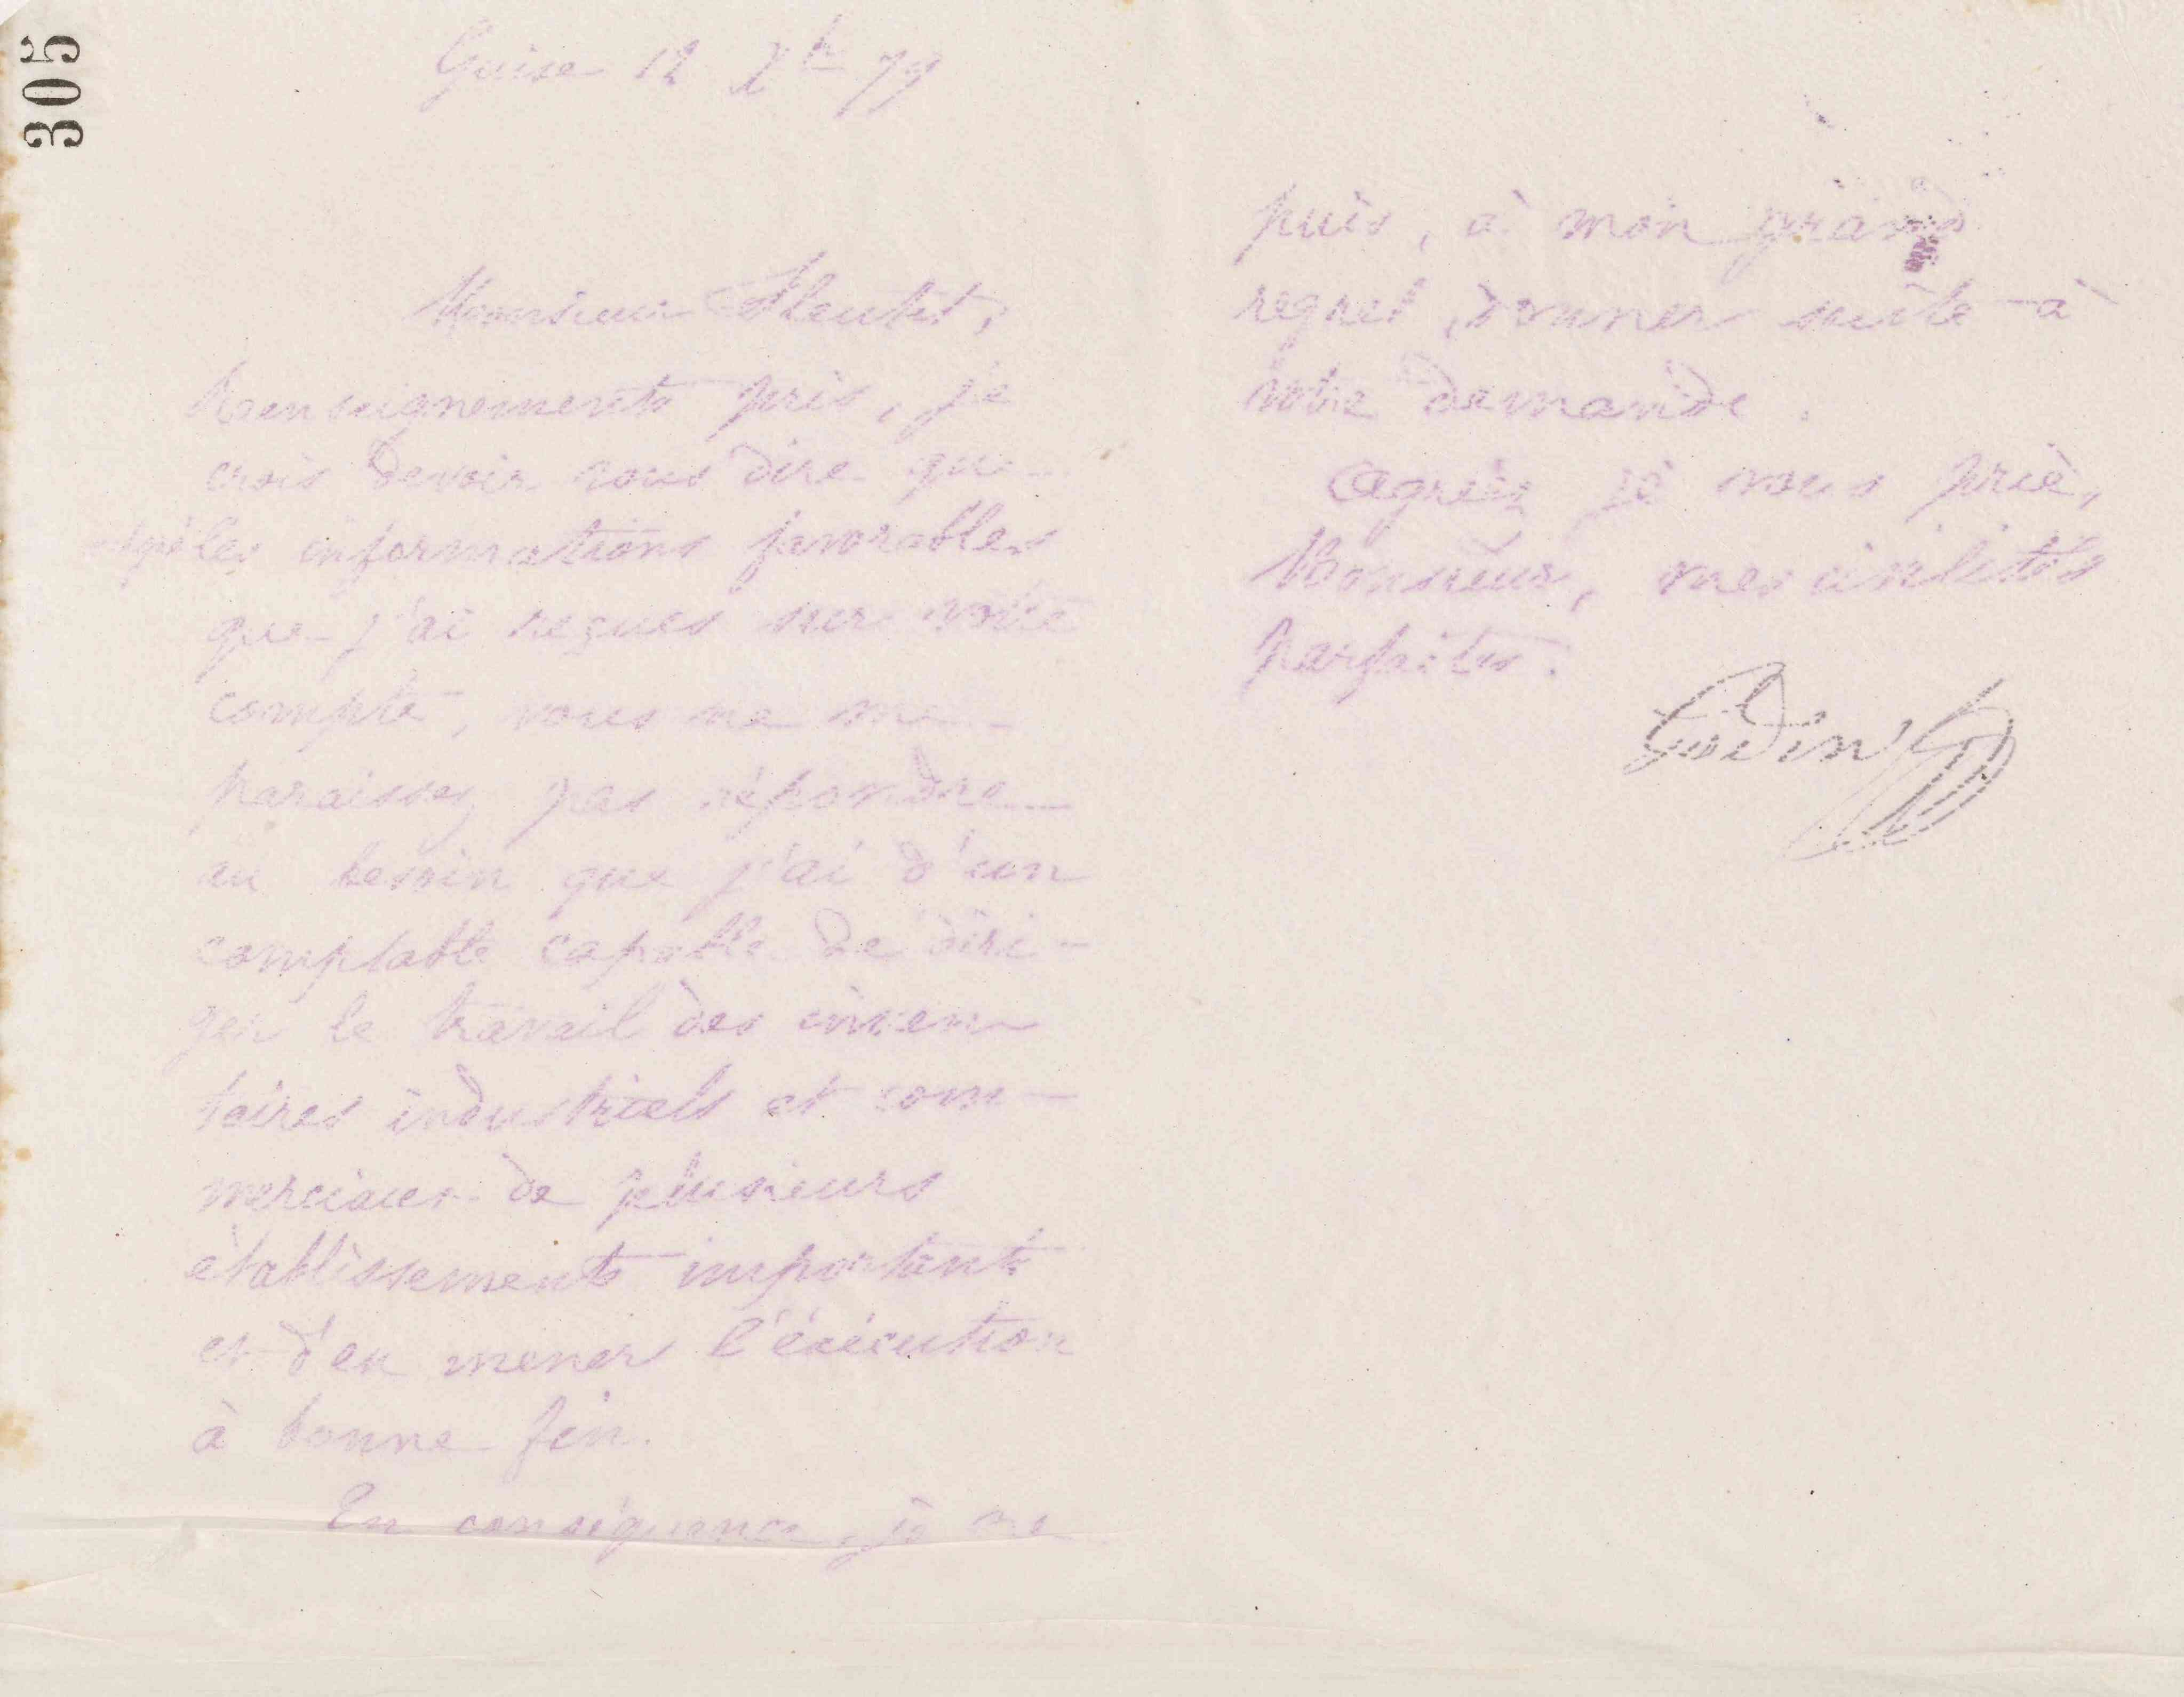 305
Guise 12 Xbre 79
Monsieur
Renseignements pris, je
crois devoir vous dire que
malgré les informations favorables
que j'ai reçues sur votre
compte, vous ne me
paraissez pas répondre
au besoin que j'ai d'un
comptable capable de diri-
ger le travail des inven-
taires industriels et com-
merciaux de plusieurs
établissements importants
et d'en mener l'éxécution
à bonne fin.
En conséquence, je ne
puis, à mon grand
regret, donner suite à
votre demande.
Agréez je vous prie,
Monsieur, mes civilités
parfaites.
Godin